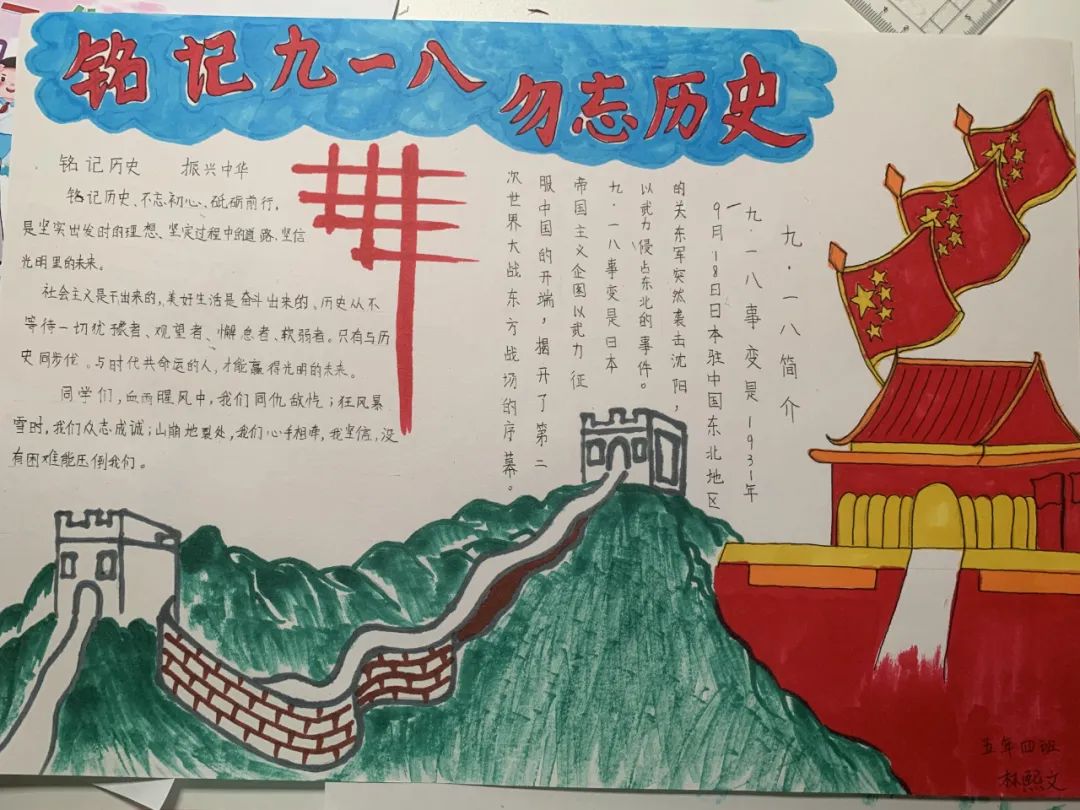 铭记九一八 勿志历史
铭记历史 振兴中华
铭记历史、不忘初心、砥砺前行，
是坚实出发时的理想、坚实过程中的道路、坚信
光明里的未来。
社会主义是干出来的，美好生活是奋斗出来的、历史从不
等待一切犹豫者、观望者、懈怠者、软弱者。只有与历
史同步伐。与时代共命运的人，才能赢得光明的未来。
同学们，血雨腥风中，我们同仇敌忾；狂风暴
雪时，我们众志成诚；山崩地裂处，我们心手相牵，我坚信，没
有困难能压倒我们。
九·一八简介
九·一八事变是1931年
9月18日日本驻中国东北地区
的关东军突然袭击沈阳，
以武力侵占东北的事件。
九·一八事变是日本
帝国主义企图以武力征
服中国的开端，揭开了第二
次世界大战东方战场的序幕。
五年四班
林熙文